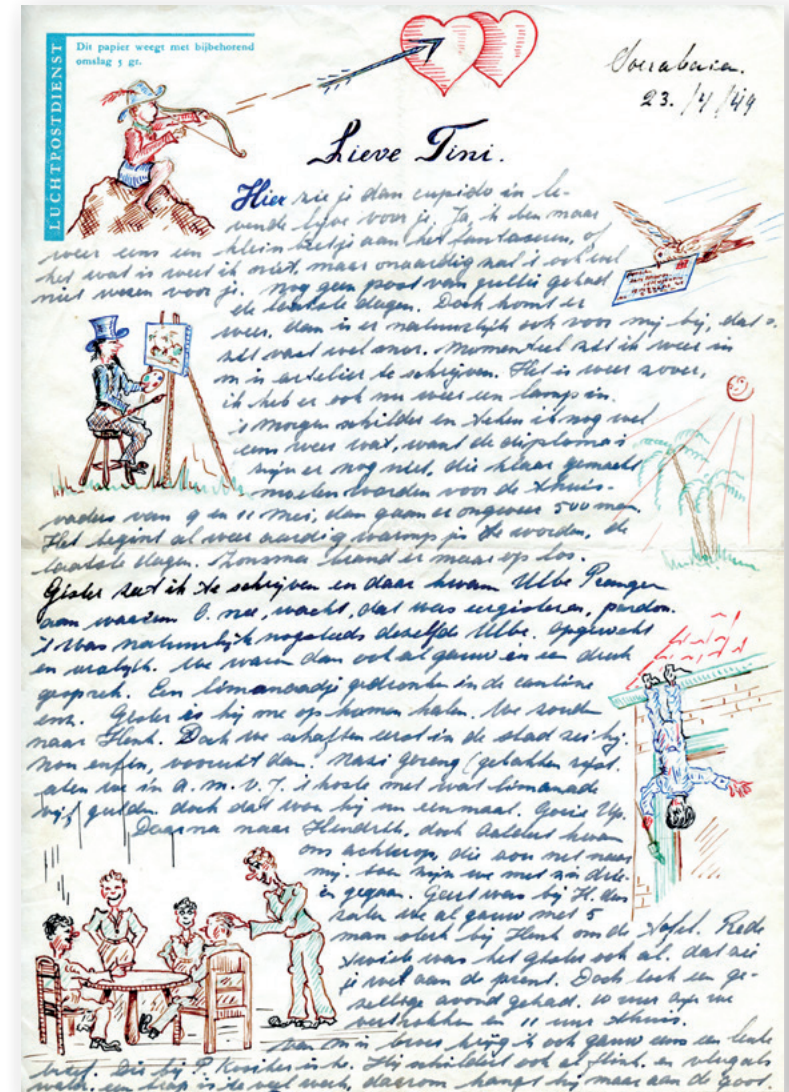 LUCHTPOSTDIENST
Dit papier weegt met bijbehorend
omslag 5 gr.
Soerabaia.
23./4/49
Lieve Tini.
Hier zie je dan cupido in le-
vende lijve voor je. Ja, ik ben maar
weer eens een klein beetje aan het fantaseren, of
het wat is weet ik niet, maar onaardig zal 't ook wel
niet wezen voor je. Nog geen post van jullie gehad
de laatste dagen. Doch komt er
weer, dan is er natuurlijk ook voor mij bij, dat
zit vast wel snor. Momenteel zit ik weer in
m'n artelier te schrijven. Het is weer zover,
ik heb er ook nu weer een lamp in.
's Morgen schilder en teken ik nog wel
eens weer wat, want de diploma's
zijn er nog niet, die klaar gemaakt
moeten worden voor de thuis-
vaders van 9 en 11 Mei, dan gaan er ongeveer 500 man.
Het begint al weer aardig warmpjes te worden, de
laatste dagen. brand er maar op los.
Gister zat ik te schrijven en daar kwam Ulbe Pranger
aan O. nee, wacht, dat was eergisteren, pardon.
't Was natuurlijk nogsteeds dezelfde Ulbe. Opgewekt
en vrolijk. We waren dan ook al gauw in een druk
gesprek. Een limanaadje gedronken in de cantine
enz. Gister is hij me op komen halen. We zouden
naar Henk. Doch we schaften eerst in de stad zei hij.
Non enfin, vooruit dan! Nasi goreng (gebakken rijst.
aten we in A.M.V.J. 't koste met wat limanade
vijf gulden. doch dat won hij nu eenmaal. Goeie Up.
Daarna naar Hendrik, doch kwam
ons achterop, die zou net naar
mij. toen zijn we met z'n drie-
ën gegaan. Geert was bij H. dus
zaten we al gauw met 5
man sterk bij Henk om de tafel. Rede
was het gister ook al. dat zie
je wel aan de prent. Doch toch een ge-
zellige avond gehad. 10 uur zijn we
vertrokken en 11 uur thuis.
Van m'n broer krijg ik ook gauw eens een leuke
brief. Die bij P. is he. Hij schildert ook al flink. en vlug als
water. een trap is de veel werk, daarom hangt hij maar aan de goot